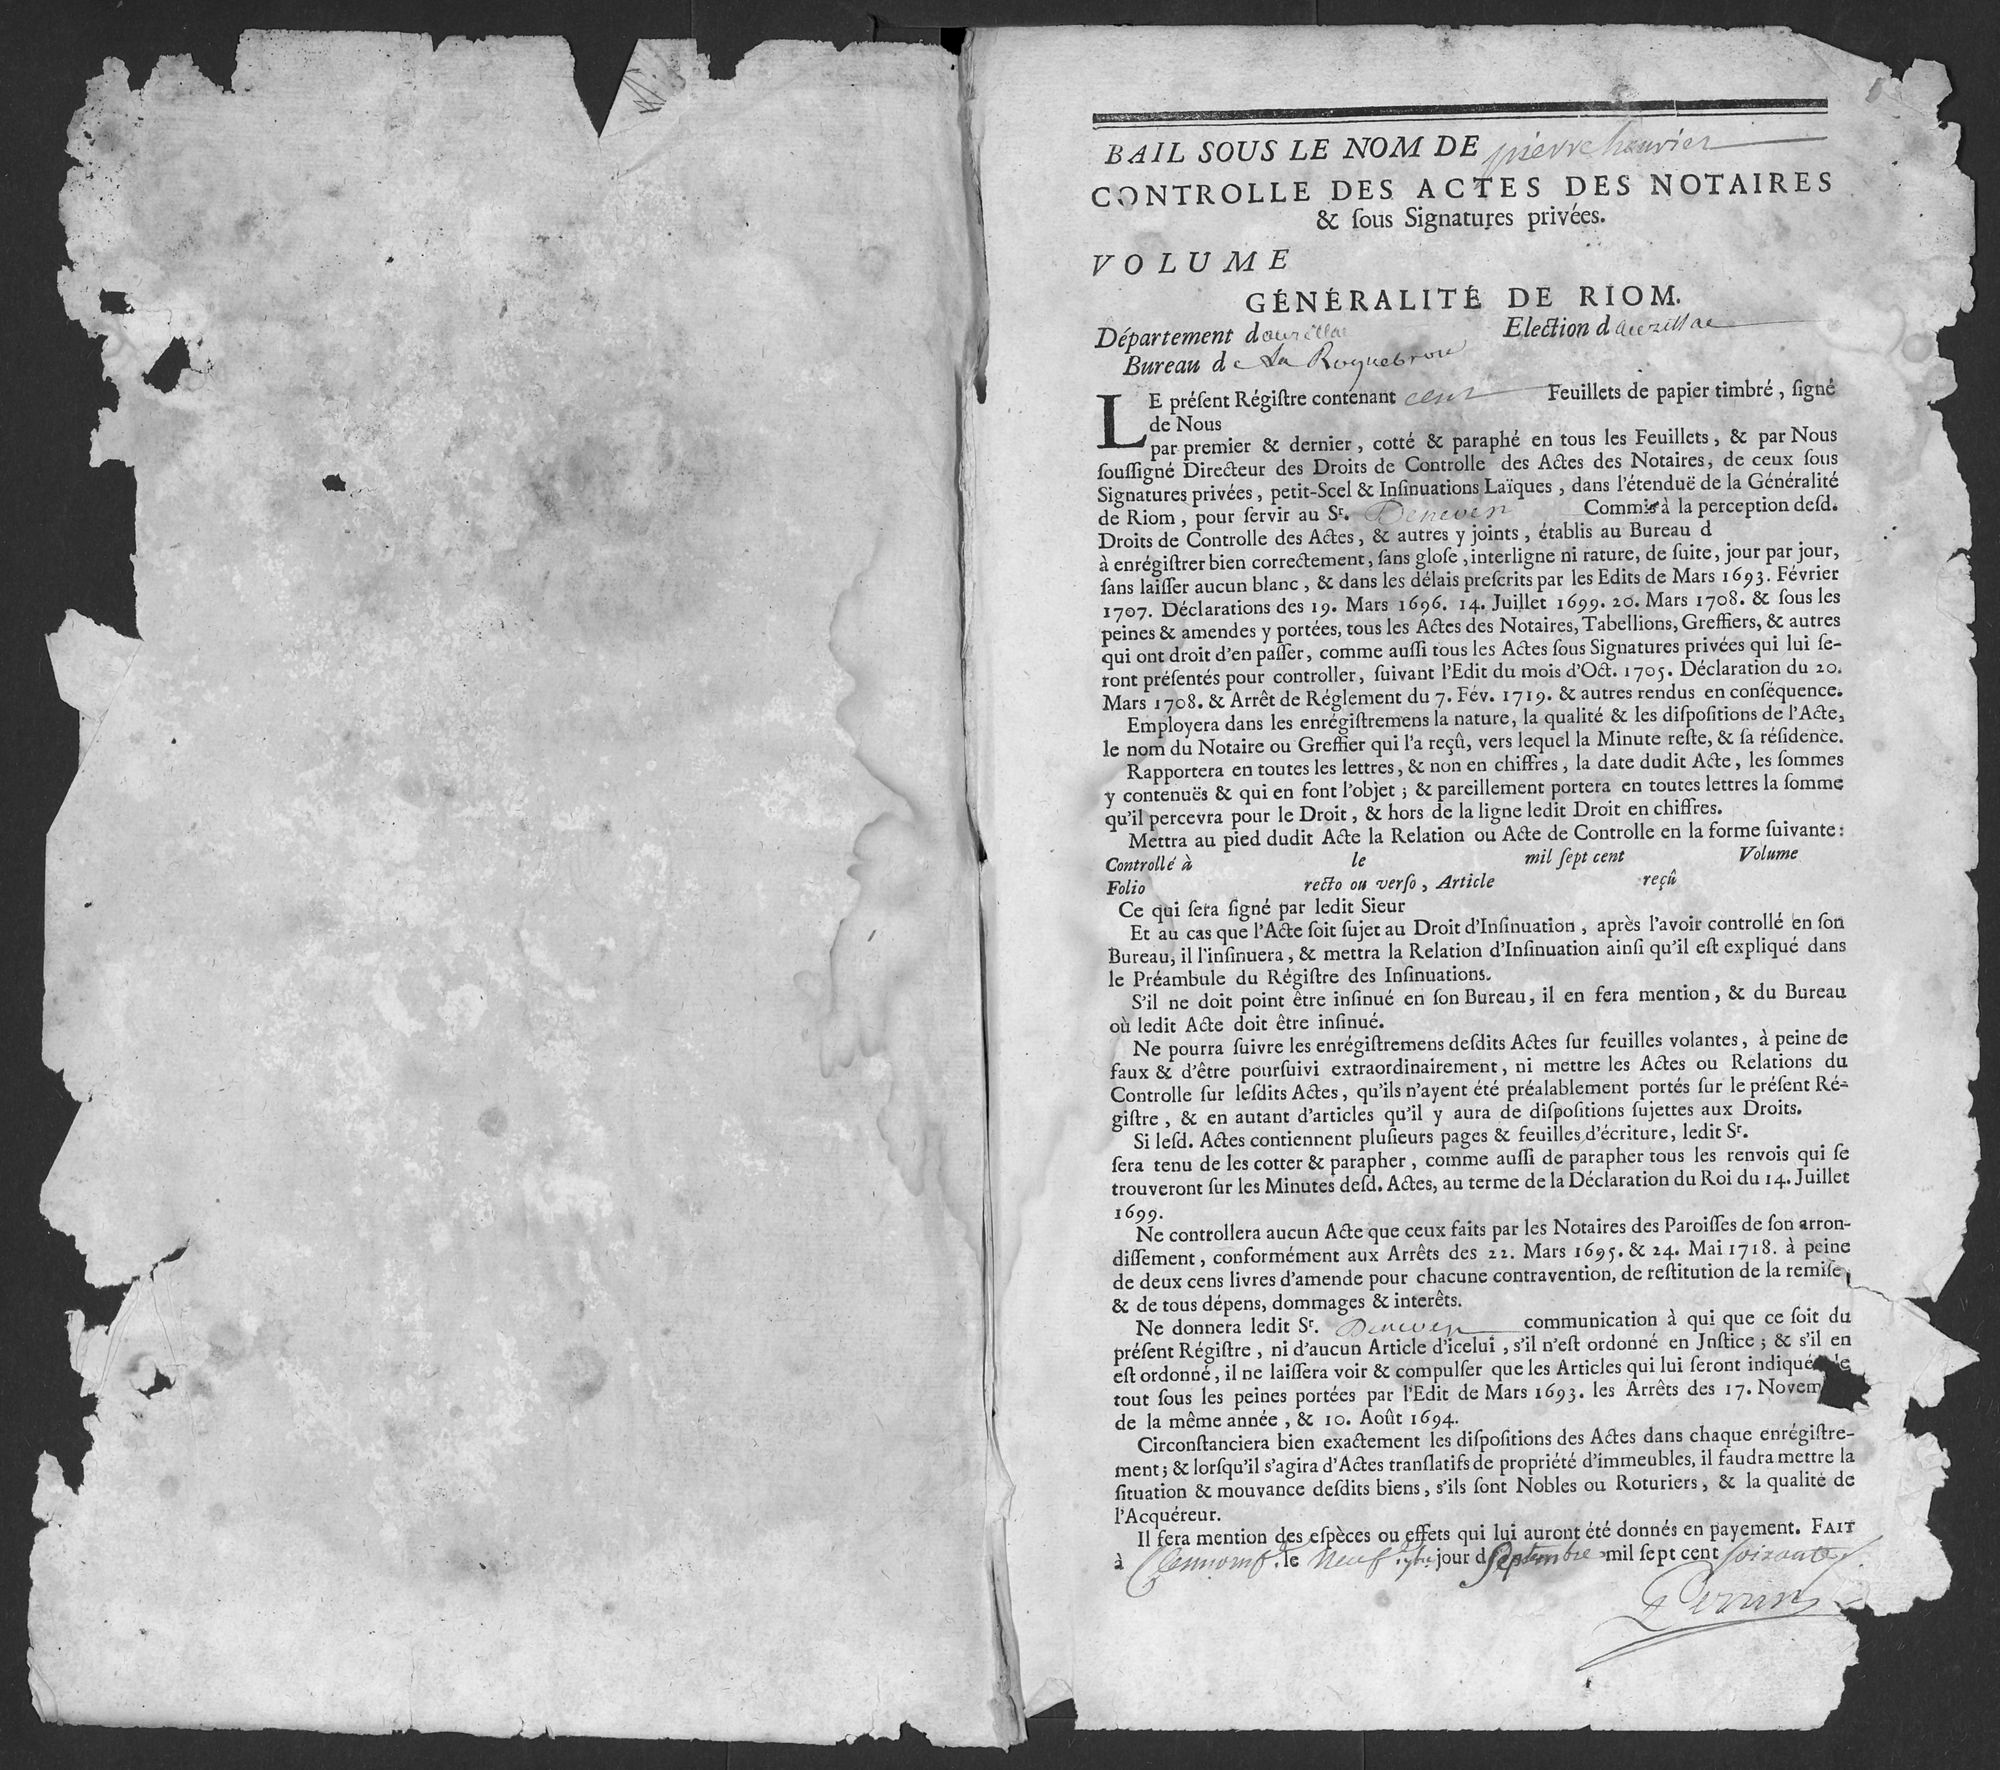 BAIL SOUS LE NOM DE pierre henrier
CONTROLLE DES ACTES DES NOTAIRES
& ſous Signatures privées.
VOLUME
GÉNÉRALITÉ DE RIOM.
Département daurillac Election daurillac
Bureau de La Roquebrou
LE préſent Régiſtre contenant cent Feuillets de papier timbré, ſigné
de Nous
par premier & dernier, cotté & paraphé en tous les Feuillets, & par Nous
ſouſſigné Directeur des Droits de Controlle des Actes des Notaires, de ceux ſous
Signatures privées, petit-Scel & Inſinuations Laïques, dans l'étenduë de la Généralité
de Riom, pour ſervir au Sr. Deneven Commis à la perception deſd.
Droits de Controlle des Actes, & autres y joints, établis au Bureau d
à enrégiſtrer bien correctement, ſans gloſe, interligne ni rature, de ſuite, jour par jour,
ſans laiſſer aucun blanc, & dans les délais preſcrits par les Edits de Mars 1693. Février
1707. Déclarations des 19. Mars 1696. 14. Juillet 1699. 20. Mars 1708. & ſous les
peines & amendes y portées, tous les Actes des Notaires, Tabellions, Greffiers, & autres
qui ont droit d'en paſſer, comme auſſi tous les Actes ſous Signatures privées qui lui ſe-
ront préſentés pour controller, ſuivant l'Edit du mois d'Oct. 1705. Déclaration du 20.
Mars 1708. & Arrêt de Réglement du 7. Fév. 1719. & autres rendus en conſéquence.
Employera dans les enrégiſtremens la nature, la qualité & les diſpoſitions de l'Acte,
le nom du Notaire ou Greffier qui l'a reçû, vers lequel la Minute reſte, & ſa réſidence.
Rapportera en toutes les lettres, & non en chiffres, la date dudit Acte, les ſommes
y contenuës & qui en font l'objet ; & pareillement portera en toutes lettres la ſomme
qu'il percevra pour le Droit, & hors de la ligne ledit Droit en chiffres.
Mettra au pied dudit Acte la Relation ou Acte de Controlle en la forme ſuivante :
Controllé à le mil ſept cent Volume
Folio recto ou verſo, Article reçû
Ce qui ſera ſigné par ledit Sieur
Et au cas que l'Acte ſoit ſujet au Droit d'Inſinuation, après l'avoir controllé en ſon
Bureau, il l'inſinuera, & mettra la Relation d'Inſinuation ainſi qu'il eſt expliqué dans
le Préambule du Régiſtre des Inſinuations.
S'il ne doit point être inſinué en ſon Bureau, il en fera mention, & du Bureau
où ledit Acte doit être inſinué.
Ne pourra ſuivre les enrégiſtremens deſdits Actes ſur feuilles volantes, à peine de
faux & d'être pourſuivi extraordinairement, ni mettre les Actes ou Relations du
Controlle ſur leſdits Actes, qu'ils n'ayent été préalablement portés ſur le préſent Ré-
giſtre, & en autant d'articles qu'il y aura de diſpoſitions ſujettes aux Droits.
Si leſd. Actes contiennent pluſieurs pages & feuilles d'écriture, ledit Sr.
ſera tenu de les cotter & parapher, comme auſſi de parapher tous les renvois qui ſe
trouveront ſur les Minutes deſd. Actes, au terme de la Déclaration du Roi du 14. Juillet
1699.
Ne controllera aucun Acte que ceux faits par les Notaires des Paroiſſes de ſon arron-
diſſement, conformément aux Arrêts des 22. Mars 1695. & 24. Mai 1718. à peine
de deux cens livres d'amende pour chacune contravention, de reſtitution de la remiſe,
& de tous dépens, dommages & interêts.
Ne donnera ledit Sr. Deneven communication à qui que ce ſoit du
préſent Régiſtre, ni d'aucun Article d'icelui, s'il n'eſt ordonné en Juſtice ; & s'il en
eſt ordonné, il ne laiſſera voir & compulſer que les Articles qui lui ſeront indiqué le
tout ſous les peines portées par l'Edit de Mars 1693. les Arrêts des 17. Novem
de la même année, & 10. Août 1694.
Circonſtanciera bien exactement les diſpoſitions des Actes dans chaque enrégiſtre-
ment ; & lorſqu'il s'agira d'Actes tranſlatifs de propriété d'immeubles, il faudra mettre la
ſituation & mouvance deſdits biens, s'ils ſont Nobles ou Roturiers, & la qualité de
l'Acquéreur.
Il fera mention des eſpèces ou effets qui lui auront été donnés en payement. FAIT
à Clermont, le neuf jour d Septembre mil ſept cent soixante